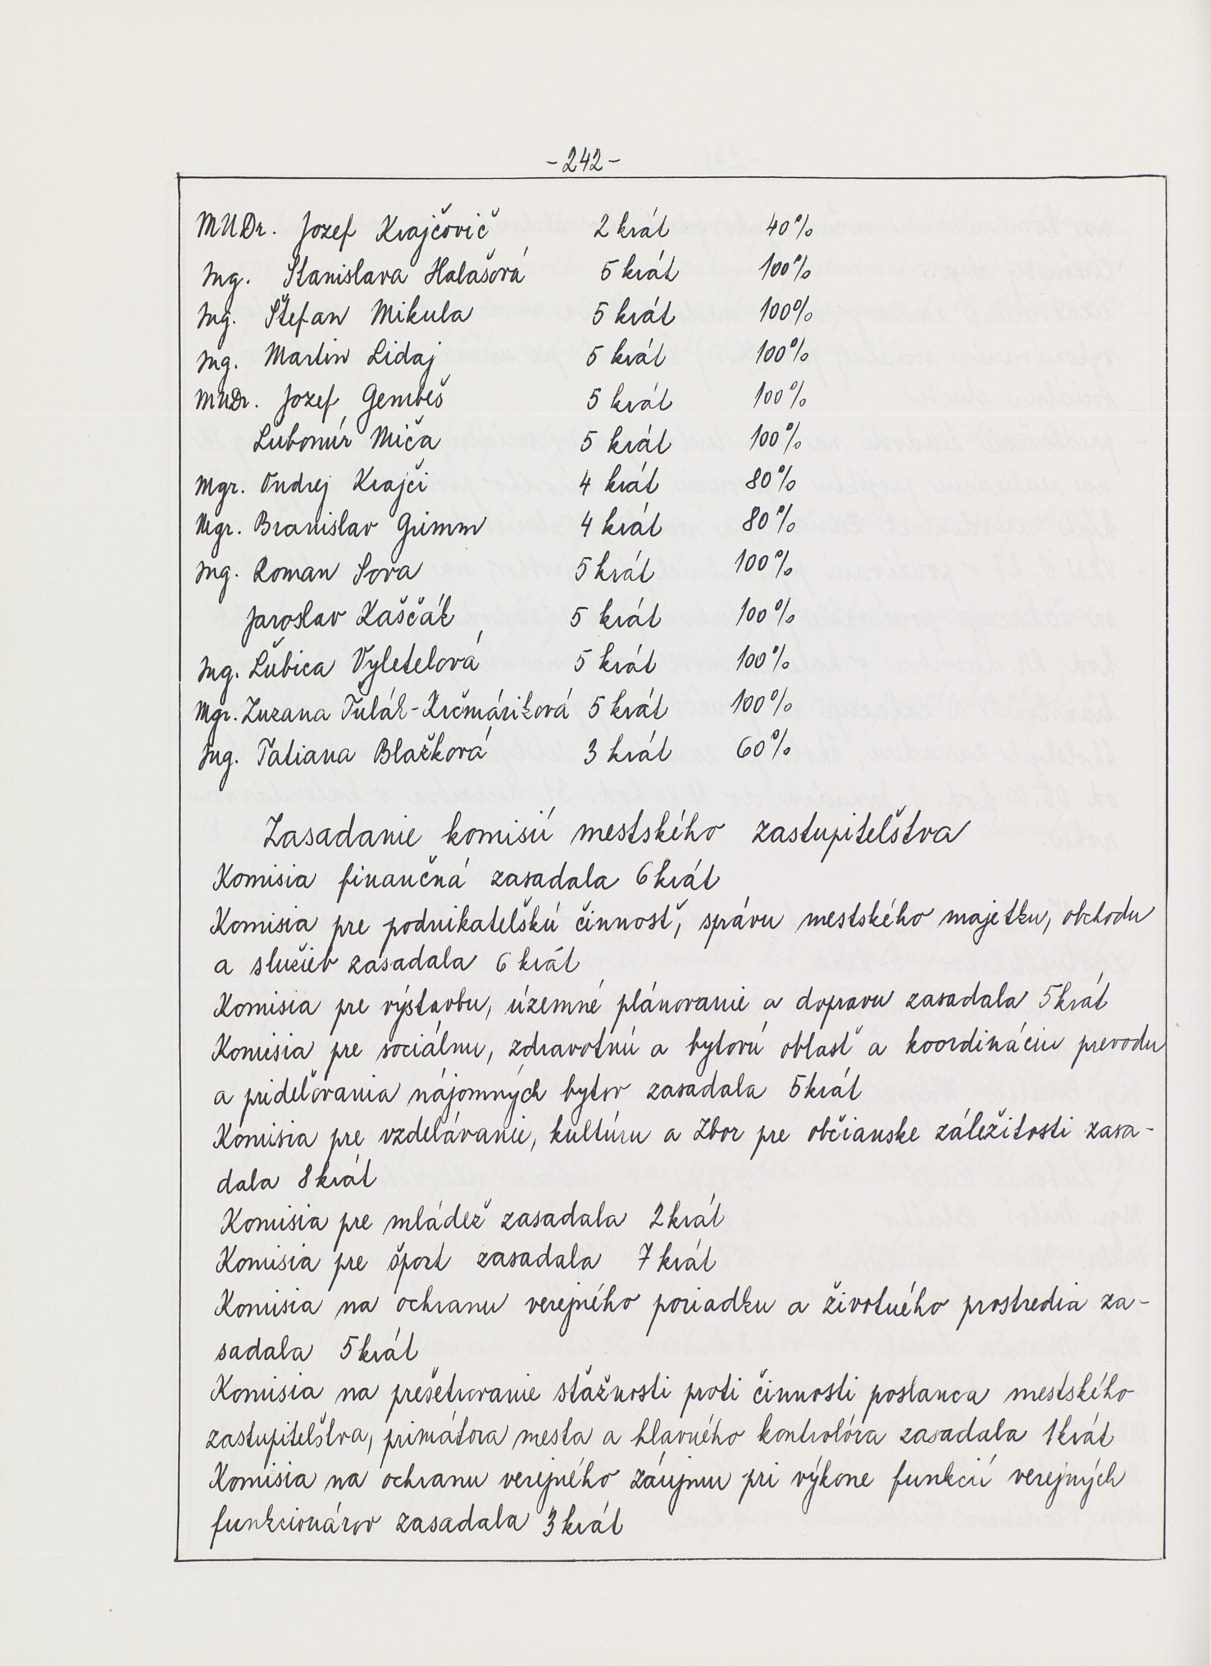 -242-
MUDr. Jozef Krajčovič 2 krát 40%
Ing. Stanislava Halašová 5 krát 100%
Ing. Štefan Mikula 5 krát 100%
Ing. Martin Lidaj 5 krát 100%
MUDr. Jozef Gembeš 5 krát 100%
Ľubomír Miča 5 krát 100%
Mgr. Ondrej Krajči 4 krát 80%
Mgr. Branislav Grimm 4 krát 80%
Ing. Roman Sova 5 krát 100%
Jaroslav Kaščák 5 krát 100%
Ing. Ľubica Vyletelová 5 krát 100%
Mgr. Zuzana Ťulák-Krčmáriková 5 krát 100%
Ing. Tatiana Blažková 3 krát 60%
Zasadanie komisií mestského zastupiteľstva
Komisia finančná zasadala 6 krát
Komisia pre podnikateľskú činnosť, správu mestského majetku, obchodu
a služieb zasadala 6 krát
Komisia pre výstavbu, územné plánovanie a dopravu zasadala 5 krát
Komisia pre sociálnu, zdravotnú a bytovú oblasť a koordináciu prevodu
a prideľovania nájomných bytov zasadala 5 krát
Komisia pre vzdelávanie, kultúru a Zbor pre občianske záležitosti zasa-
dala 8 krát
Komisia pre mládež zasadala 2 krát
Komisia pre šport zasadala 7 krát
Komisia na ochranu verejného poriadku a životného prostredia za-
sadala 5 krát
Komisia na prešetrovanie sťažnosti proti činnosti poslanca mestského
zastupiteľstva, primátora mesta a hlavného kontrolóra zasadala 1 krát
Komisia na ochranu verejného záujmu pri výkone funkcií verejných
funkcionárov zasadala 3 krát